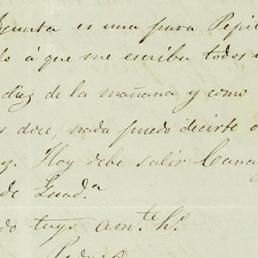 junta es una para Pepi
á que me escriba todos
diez de la mañana y como
doce, nada puedo decirte
Hoy debe salir
de Guad.ª
tuyo am.te h.º